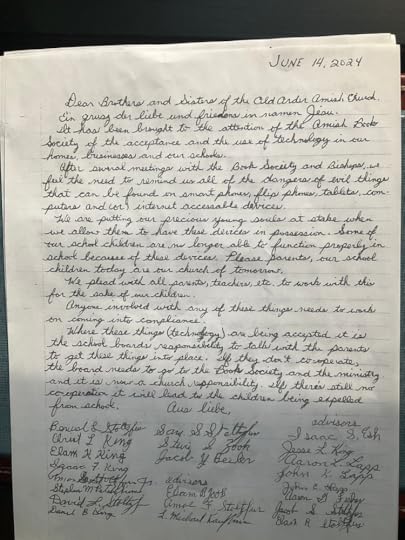 JUNE 14, 2024
Dear Brothers and Sisters of the Old Order Amish Church.
Ein grusz der liebe und friedens in namen Jesu.
It has been brought to the attention of the Amish Book
Society of the acceptance and the use of technology in our
homes, businesses and our schools.
After several meetings with the Book Society and Bishops, we
feel the need to remind us all of the dangers of evil things
that can be found in smart phones, flip phones, tablets, com-
puters and (or) internet accessable devices.
We are putting our precious young souls at stake when
we allow them to have these devices in possession. Some of
our school children are no longer able to function properly in
school because of these devices. Please parents, our school
children today are our church of tomorrow.
We plead with all parents, teachers, etc. to work with this
for the sake of our children.
Anyone involved with any of these things needs to work
on coming into compliance.
Where these things (technology) are being accepted it is
the school boards responsibility to talk with the parents
to get these things into place. If they don't co-operate,
the board needs to go to the Book Society and the ministry
and it is now a church responsibility. If there's still no
cooperation it will lead to the children being expelled
from school. Aus liebe,
advisors
Benuel S. Stoltzfus Sam S. Stoltzfus Isaac S. Esh
Christ L. King Zook Jesse L. King
Elam K. King Jacob Y. Beiler Aaron L. Lapp
Isaac F. King John K. Lapp
advisors
Elam B. Zook
David L. Stoltzfus Amos F. Stoltzfus Jacob S. Stoltzfus
Daniel B. King L. Michael Kauffman Stoltzfus